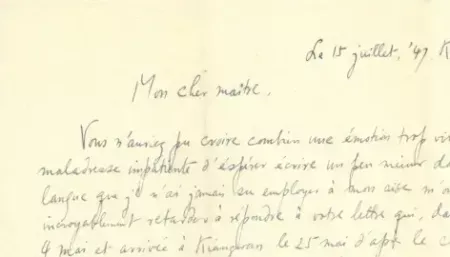 Le 15 juillet, '47. K
Mon cher maître,
Vous n'auriez pu croire combien une émotion trop viv
maladresse impatiente d'espérer écrire un peu mieux da
langue que je n'ai jamais su employer à mon aise m'o
incroyablement retarder à répondre à votre lettre qui, da
4 mai et arrivée à le 25 mai d'apr le c